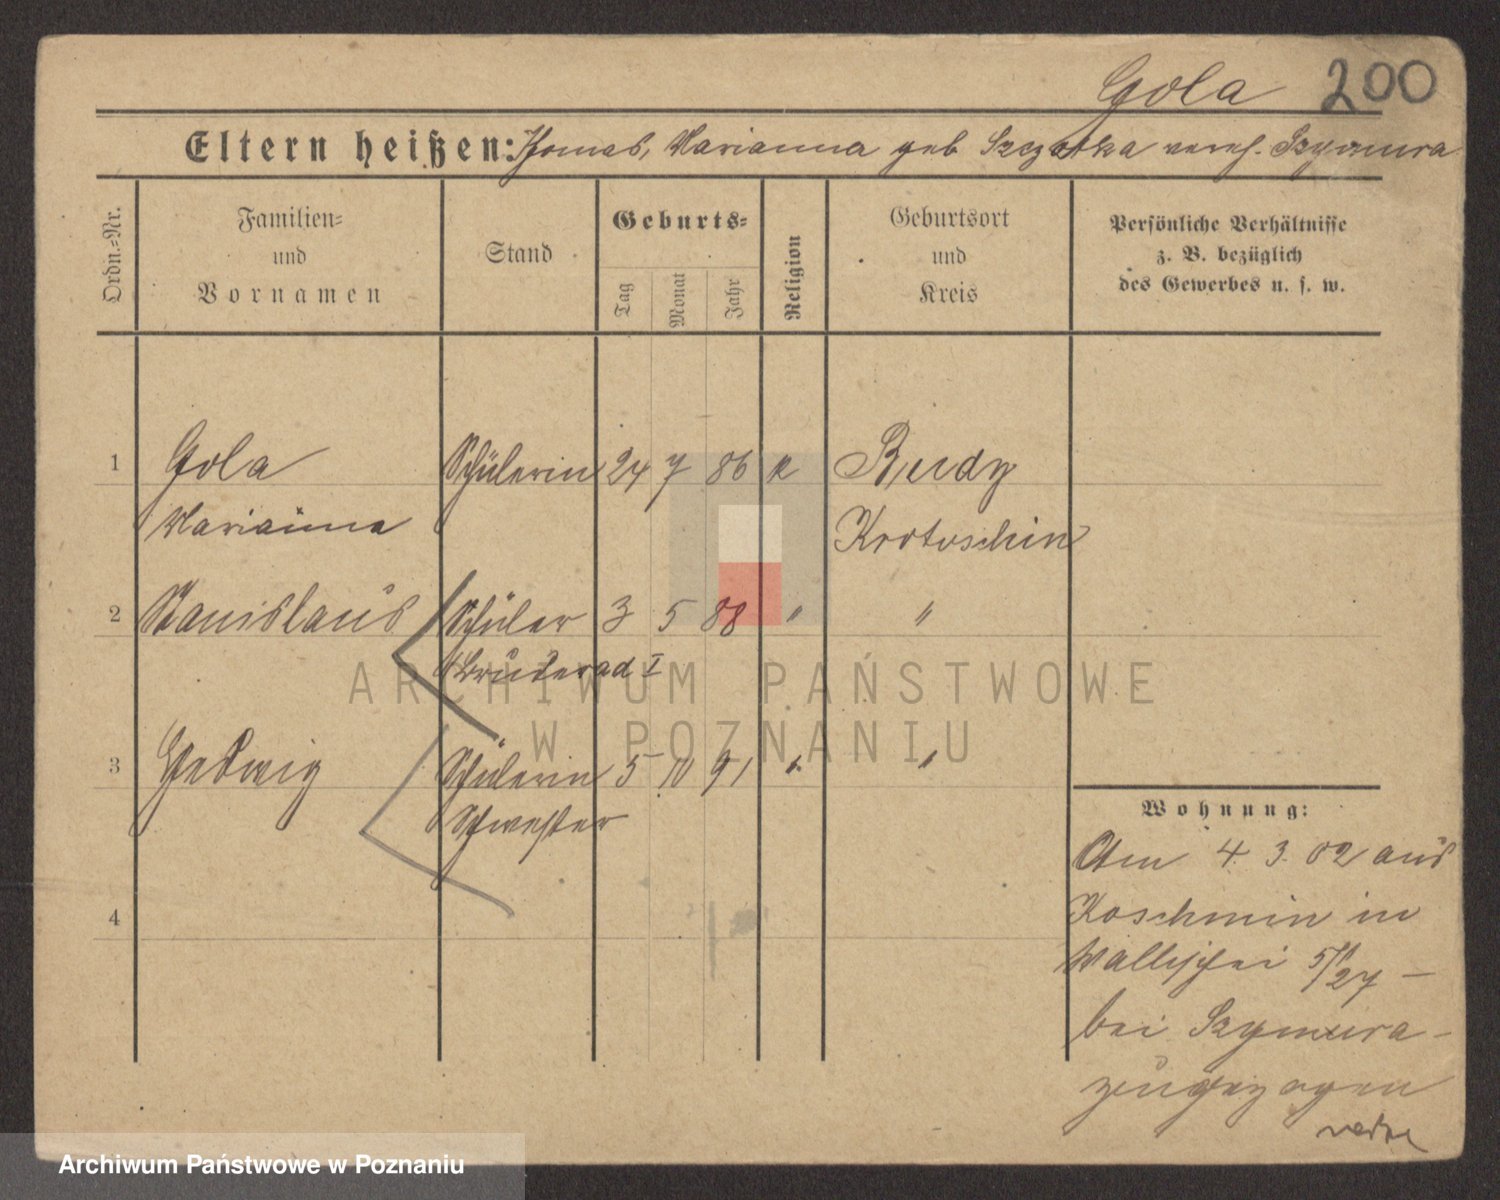 Gola 200
Eltern heißen: Thomas, Marianna geb Szczotka vereh. Szymura
Ordn.=Nr.
Familien=
und
Vornamen
Stand
Geburts=
Tag
Monat
Jahr
Religion
Geburtsort
und
Kreis
Persönliche Verhältnisse
z. B. bezüglich
des Gewerbes u. s. w.
1 Gola Schülerin 24 7 86 K Rudy
Marianna Krotoschin
2 Stanislaus Schüler 3 5 88 " "
Bruder ad I
3 Hedwig Schülerin 5 10 91 " "
Schwester
4
Wohnung:
Am 4. 3. 02 aus
Koschmin in
Wallischei 5/27 –
bei Szymura –
zugezogen
ARCHIWUM PAŃSTWOWE
W POZNANIU
Archiwum Państwowe w Poznaniu